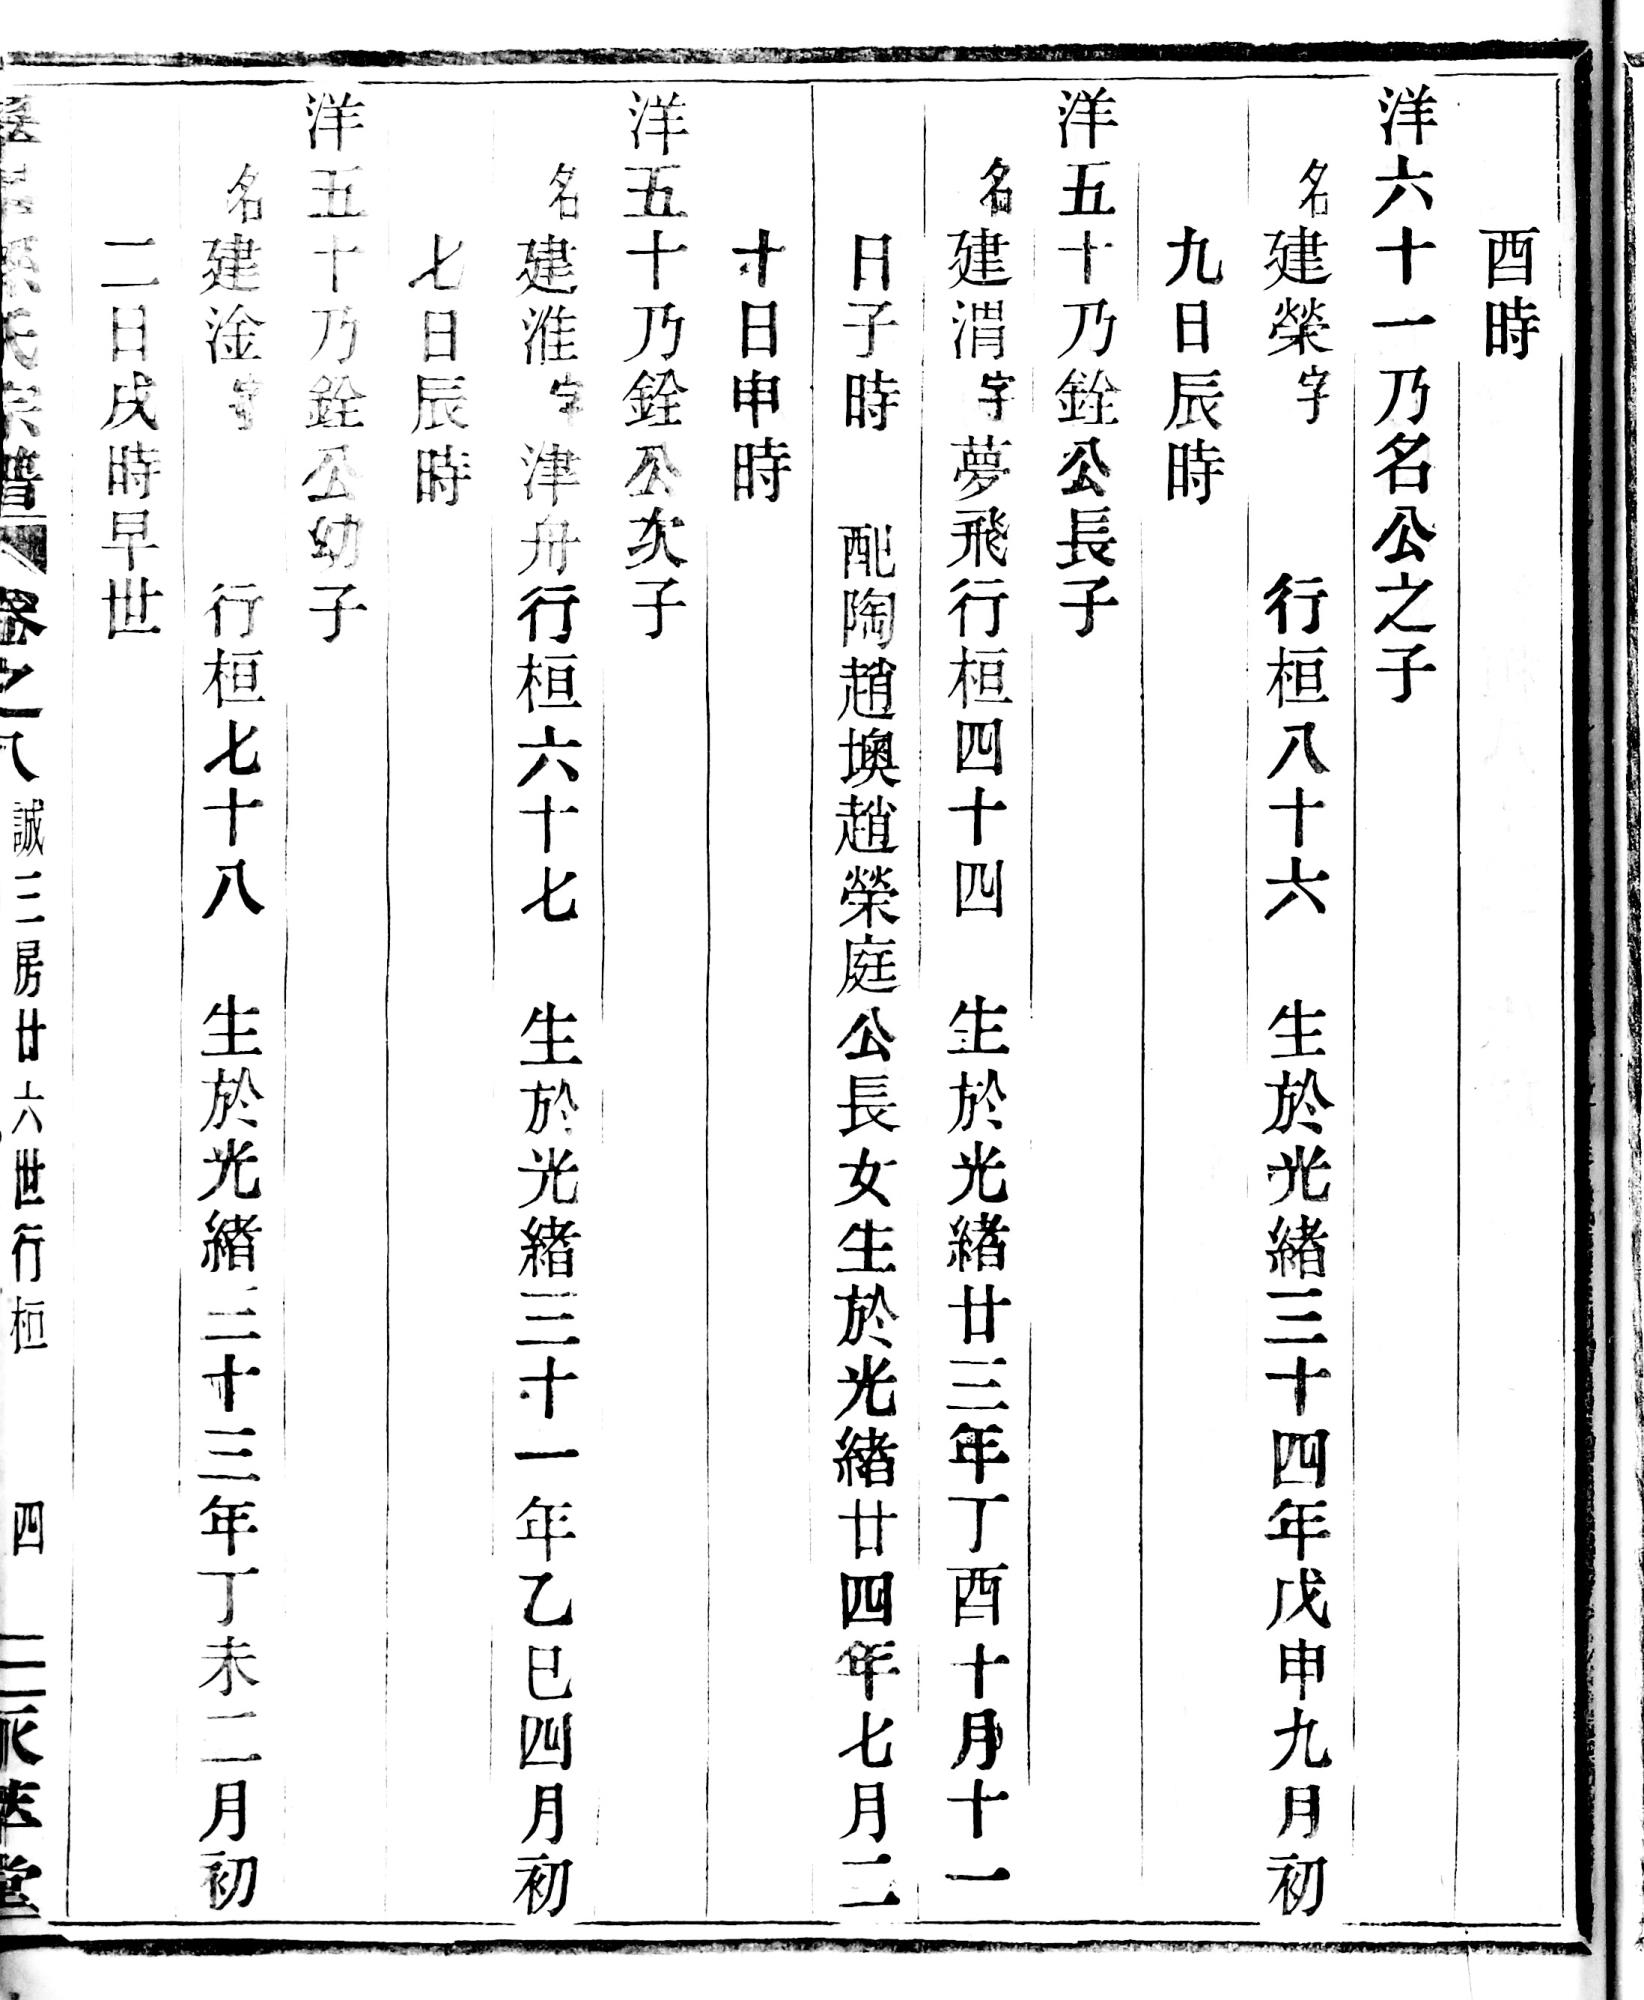 酉時
洋六十一乃名公之子
名建榮字　行桓八十六　生於光緒三十四年戊申九月初
九日辰時
洋五十乃銓公長子
名建渭字夢飛行桓四十四　生於光緒廿三年丁酉十月十一
日子時　配陶趙墺趙榮庭公長女生於光緒廿四年七月二
十日申時
洋五十乃銓公次子
名建淮字津舟行桓六十七　生於光緒三十一年乙巳四月初
七日辰時
洋五十乃銓公幼子
名建淦字　行桓七十八　生於光緒三十三年丁未二月初
二日戌時早世
氏宗譜　卷之八　誠三房廿六世行桓　四　堂